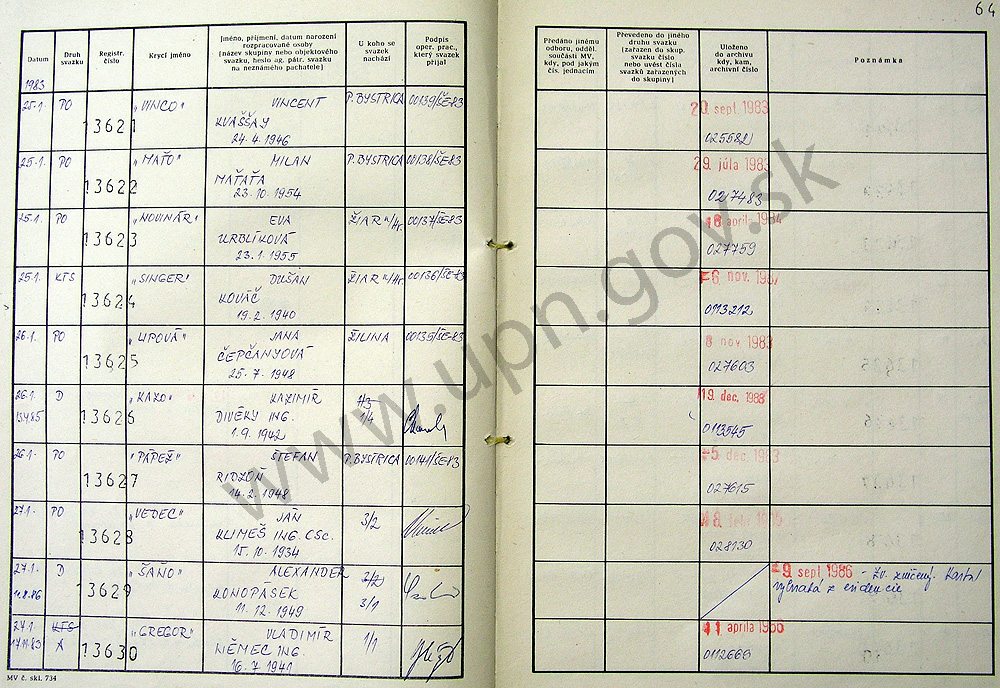 64
Datum
Druh svazku
Registr. číslo
Krycí jméno
Jméno, příjmení, datum narození
rozpracované osoby
(název skupiny nebo objektového
svazku, heslo ag. pátr. svazku
na neznámého pachatele)
U koho se
svazek
nachází
Podpis
oper. prac.,
který svazek
přijal
Předáno jinému
odboru, odděl.
součásti MV,
kdy, pod jakým
čís. jednacím
Převedeno do jiného
druhu svazku
(zařazen do skup.
svazku číslo
nebo uvést čísla
svazků zařazených
do skupiny)
Uloženo
do archivu
kdy, kam,
archivní číslo
Poznámka
1983
25.1. PO 13621 „VINCO" VINCENT P. BYSTRICA 00139/ŠE-83 20. sept. 1983
KVAŠŠAY
24.4.1946 025582
25.1. PO 13622 „MAŤO" MILAN P. BYSTRICA 00138/ŠE-83 29. júla 1983
MAŤAŤA
23.10.1954 027483
25.1. PO 13623 „NOVINÁR" EVA ŽIAR n/Hr. 00137/ŠE-83 apríla 1984
URBLÍKOVÁ
23.1.1955 027759
25.1. KTS 13624 „SINGER" DUŠAN ŽIAR n/Hr. 00136/ŠE-83 nov.
KOVÁČ
19.2.1940 0113212
26.1. PO 13625 JANA ŽILINA 00135/ŠE-83 8 nov 1983
ČEPČANYOVÁ
25.7.1948 027603
26.1. D 13626 „KAZO" KAZIMÍR 19. dec. 1988
13.4.85 DIVÉKY ING. 1/4
1.9.1942 0113545
26.1. PO 13627 „PÁPEŽ" ŠTEFAN P. BYSTRICA 00141/ŠE-83 dec. 1983
RIDZOŇ
14.2.1948 027615
27.1. PO 13628 „VEDEC" JÁN 3/2
KLIMEŠ ING. CSc.
15.10.1934 028130
27.1. D 13629 „ŠAŇO" ALEXANDER 2/2 9. sept 1986 - Zv. zničený. Karta
11.8.86 KONOPÁSEK 3/1 vybratá z evidencie
11.12.1949
27.1. KTS 13630 „GREGOR" VLADIMÍR 1/1 11 apríla
A NĚMEC ING
16.7.1941 0112669
MV č. skl. 734
www.upn.gov.sk